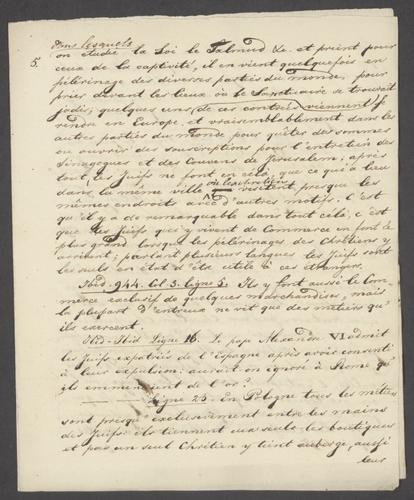 5.
dans lesquels
on étudie la Loi le Talmud &c. et prient pour
ceux de la captivité, il en vient quelquefois en
pélérinage des diverses parties du monde, pour
prier devant les lieux où le Sanctuaire se trouvait
jadis; quelques uns de ces contrées viennent se
rendre en Europe et vraisemblablement dans les
autres parties du monde pour quêter des sommes
ou ouvrir des souscriptions pour l'entretien des
Sinagogues et des Couvens de Jerusalem; après
tout, les Juifs ne font en cela, que ce qui a lieu
dans la même ville où
restent presque les
mêmes endroits avec d'autres motifs. C'est
qu'il y a de remarquable dans tout cela, c'est
que les Juifs qui y vivent de Commerce en font le
plus grand lorsque les pélerinages des Chrétiens y
arrivent; parlant plusieurs langues les Juifs sont
les seuls en état d'être utile à ces étrangers.
Ibid. 944. Col 3. ligne 5. Ils y font aussi le Com-
merce exclusif de quelques marchandises, mais
la plupart d'entreux ne vit que des métiers qu'
ils exercent.
Ibid-Ibid Ligne 16. Le pape Alexandre VI admit
les Juifs expatriés de l'Espagne après avoir consenti
à leur expulsion; aurait-on ignoré à Rome qu'
ils emmenaient de l'or?
Ligne 25. en Pologne tous les métiers
sont presqu'exclusivement entre les mains
des Juifs: ils tiennent eux seuls les boutiques
et pas un seul Chrétien y tient auberge, aussi
leur